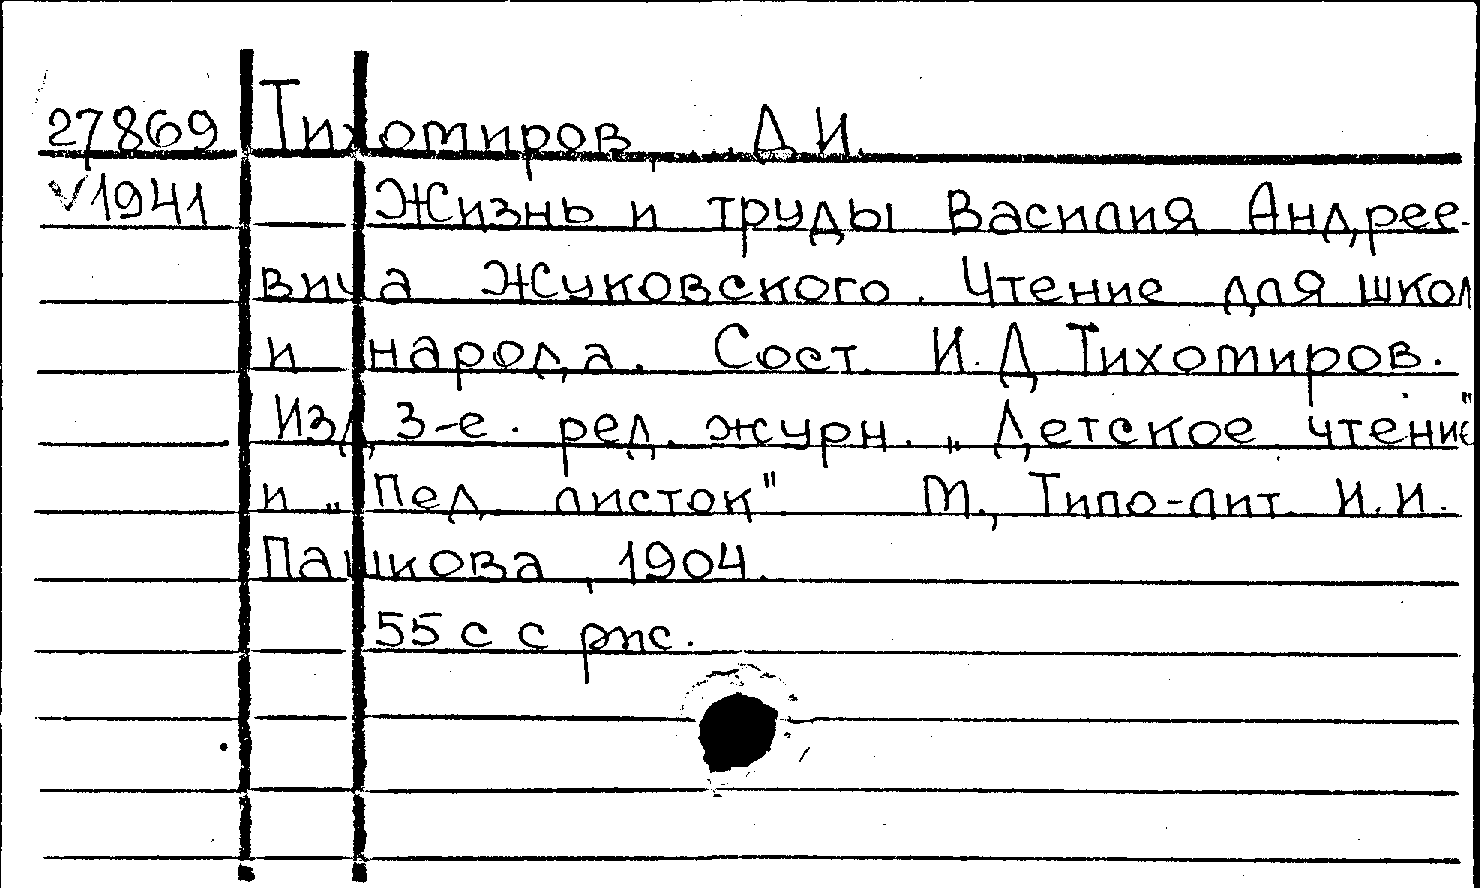 27869 Тихомиров, Д.И.
√1941 Жизнь и труды Василия Андрее-
вича Жуковского. Чтение для школ
и народа. Сост. И.Д. Тихомиров.
Изд. 3-е. ред. журн. „Детское чтение"
и „Пед. листок". М., Типо-лит. И.И.
Пашкова, 1904.
55 с с рис.